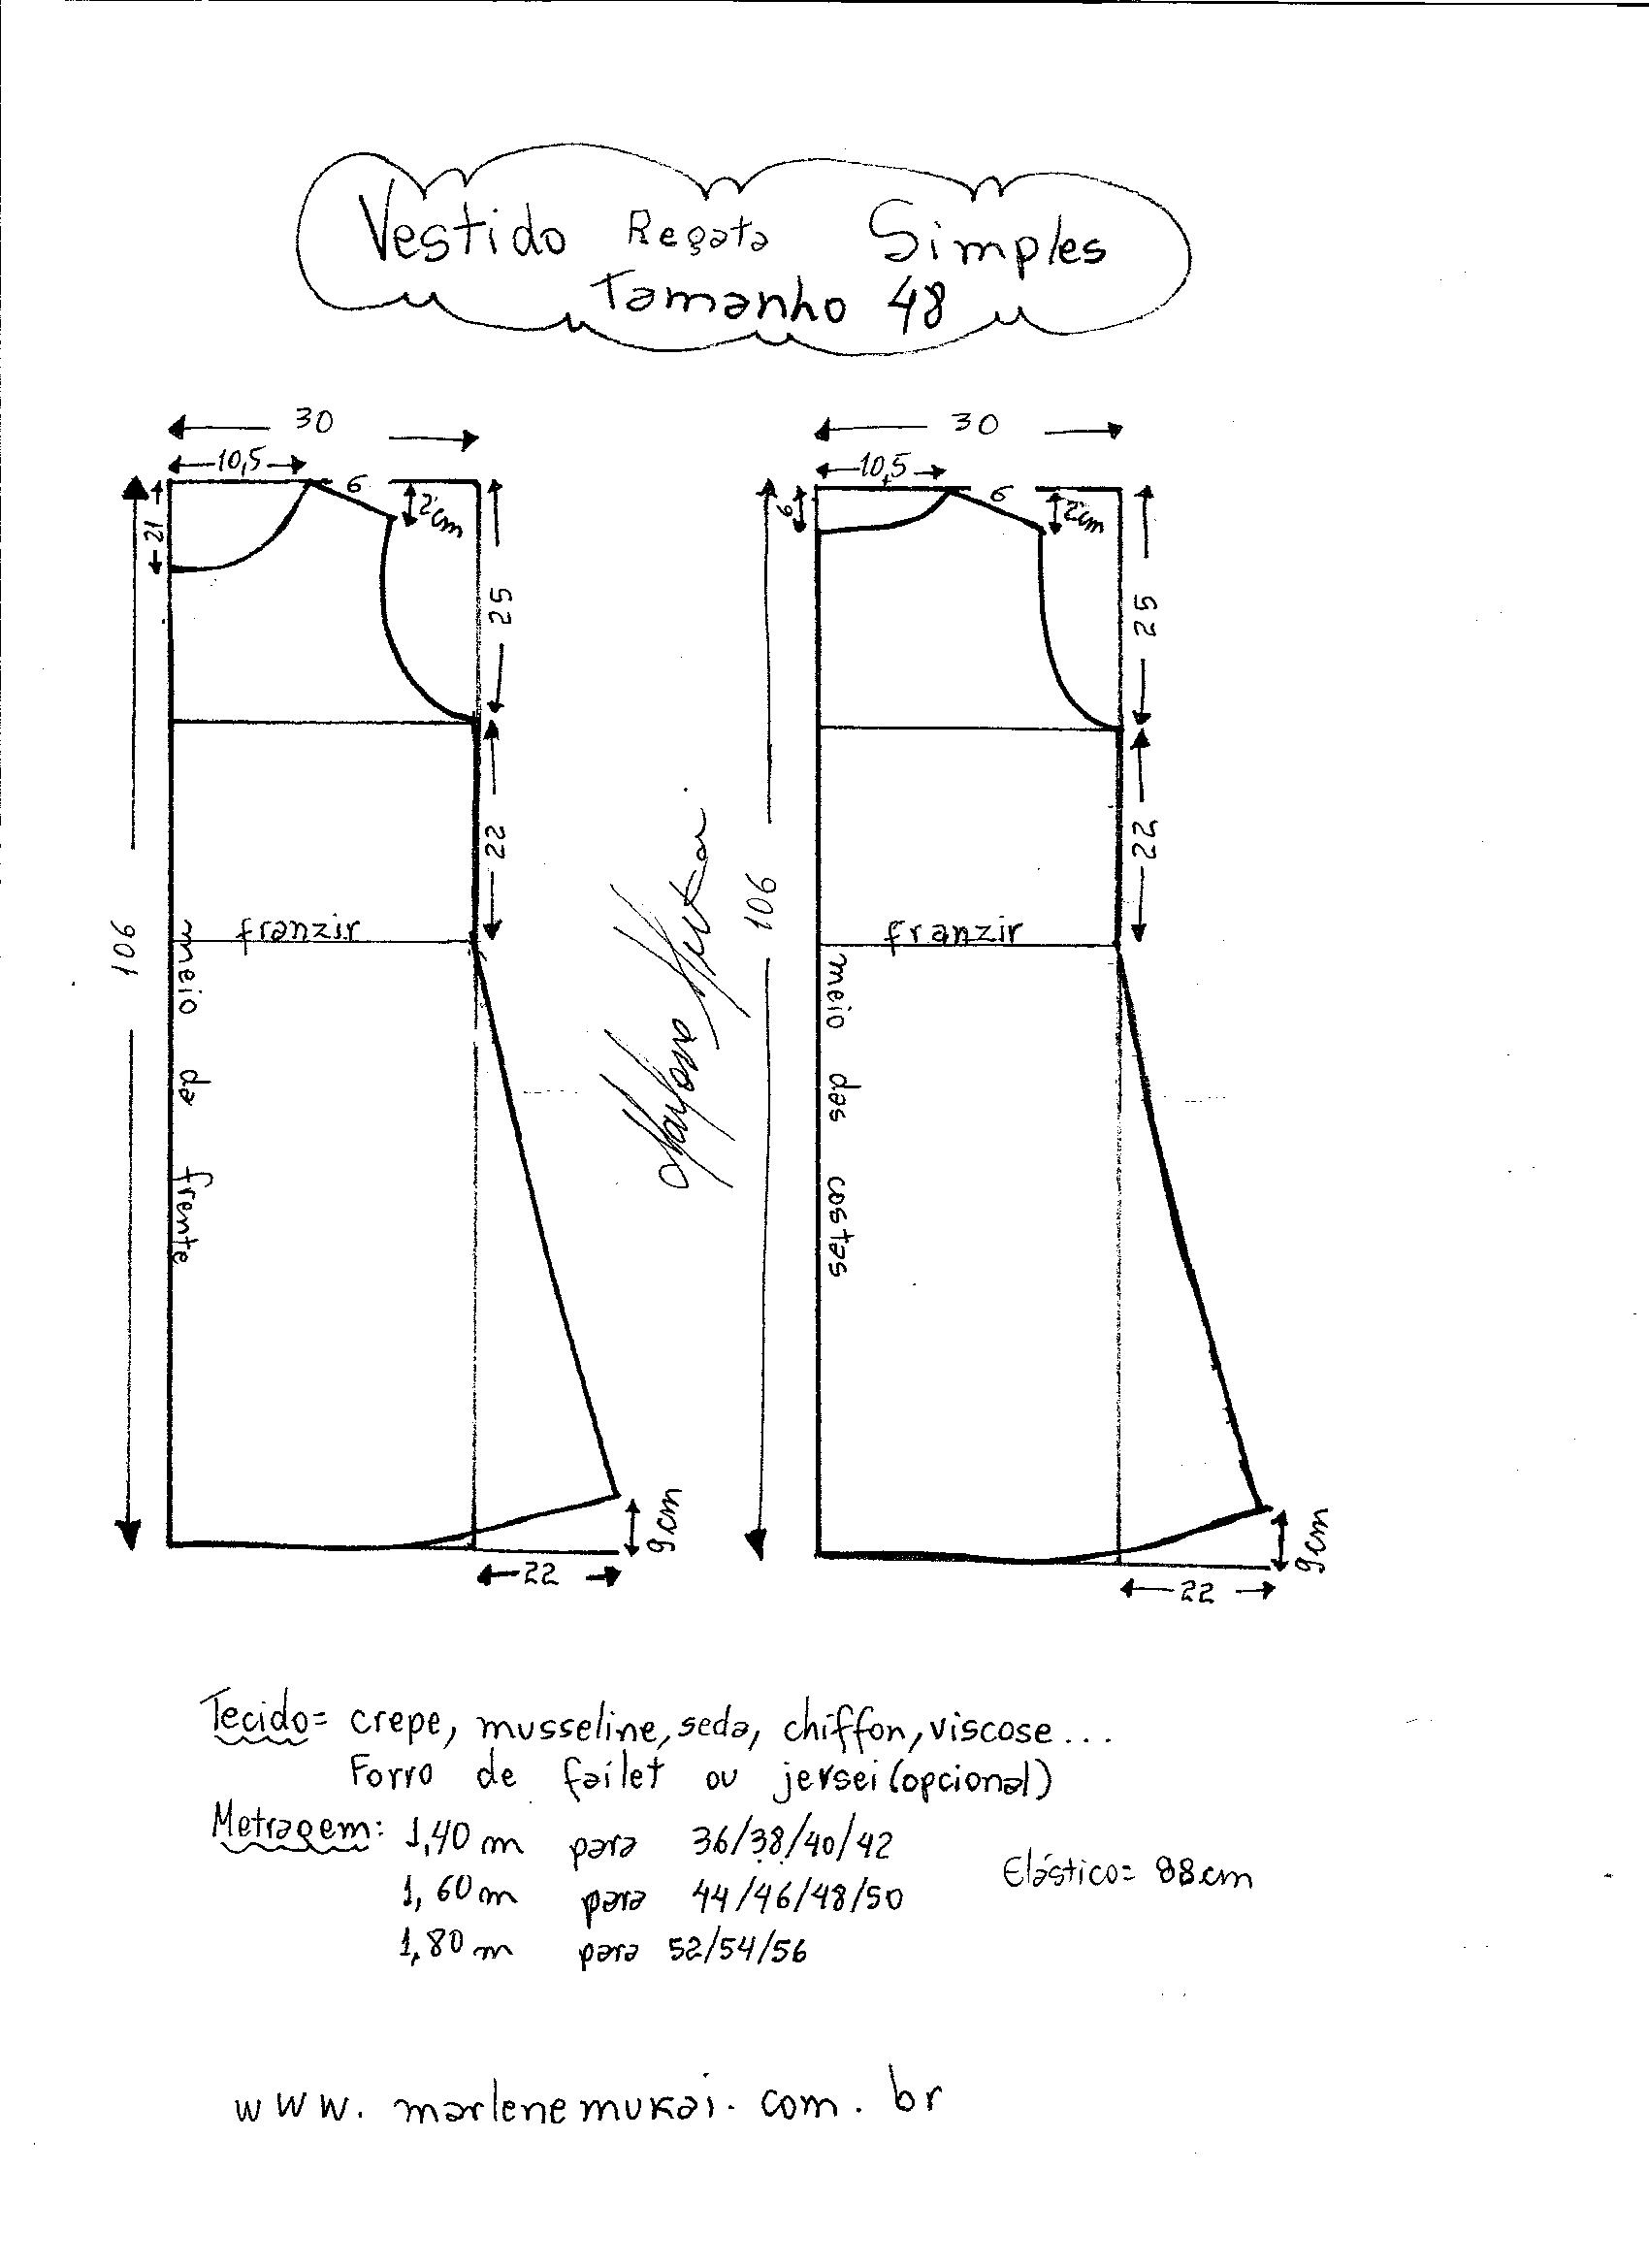 Vestido Regata Simples
Tamanho 48
30
10,5
6
2cm
12
25
22
106
franzir
meio da frente
9cm
22
30
10,5
6
6
2cm
25
22
106
franzir
meio das costas
9cm
22
Tecido= crepe, musseline, seda, chiffon, viscose...
Forro de failet ou jersei (opcional)
Metragem: 1,40m para 36/38/40/42
1,60m para 44/46/48/50
1,80m para 52/54/56
Elástico= 88cm
www.marlenemukai.com.br